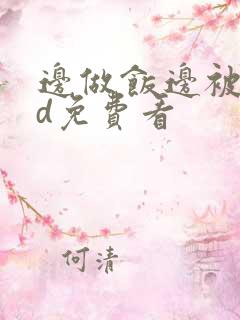 邊做飯邊被
d免費看
何清